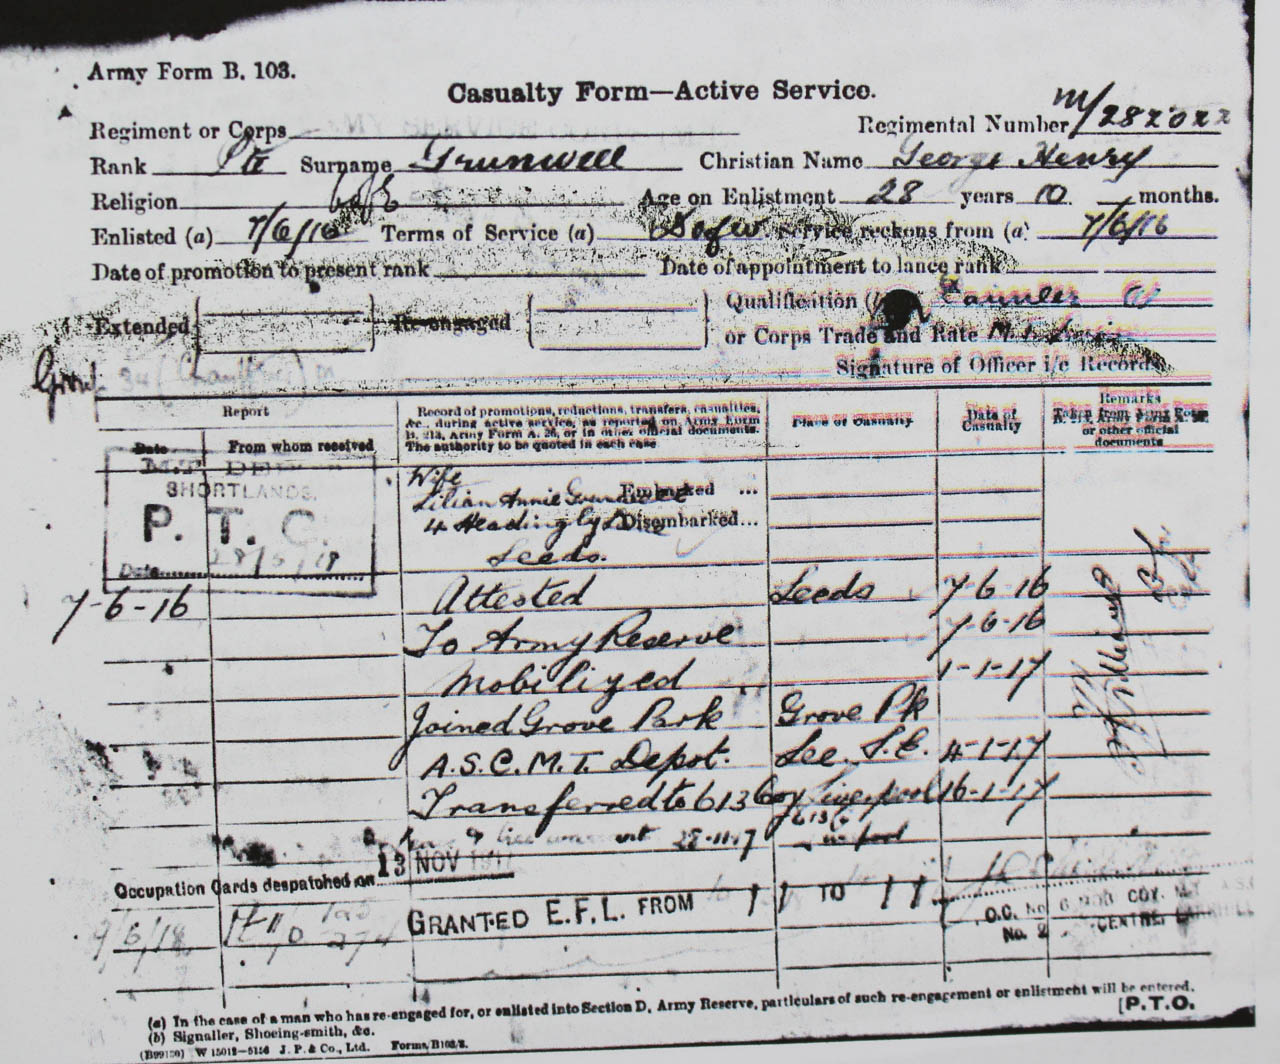 Army Form B. 103.
Casualty Form—Active Service.
Regiment or Corps
Regimental Number M/282022
Rank Pte Surname Grunwell Christian Name George Henry
Religion C of E Age on Enlistment 28 years 10 months.
Enlisted (a) 7/6/16 Terms of Service (a) D of W. Service reckons from (a) 7/6/16
Date of promotion to present rank Date of appointment to lance rank
Extended Re-engaged Qualification (b)
or Corps Trade and Rate
Signature of Officer i/c Records
Report
Record of promotions, reductions, transfers, casualties, &c., during active service, as reported on Army Form B. 213, Army Form A. 36, or in other official documents. The authority to be quoted in each case.
Place of Casualty
Date of Casualty
Remarks Taken from Army Form or other official documents
Date From whom received
SHORTLANDS.
P. T. C.
Date 28/5/18
Wife
Lilian Annie Embarked ...
4 Headingly Disembarked...
Leeds.
7-6-16 Attested Leeds 7-6-16
To Army Reserve 7-6-16
Mobilized 1-1-17
Joined Grove Park Grove Pk
A.S.C.M.T. Depot. Lee S.E. 4-1-17
Transferred to 613 Coy Liverpool 16-1-17
28-11-17
Occupation Cards despatched on 13 NOV
9/6/18 GRANTED E.F.L. FROM / / TO / /
O.C. No COY. M.T.
No. 2 CENTRE
(a) In the case of a man who has re-engaged for, or enlisted into Section D, Army Reserve, particulars of such re-engagement or enlistment will be entered.
(b) Signaller, Shoeing-smith, &c.
[P.T.O.
(B99130) W 15012—5156 J. P. & Co., Ltd. Forms/B103/2.